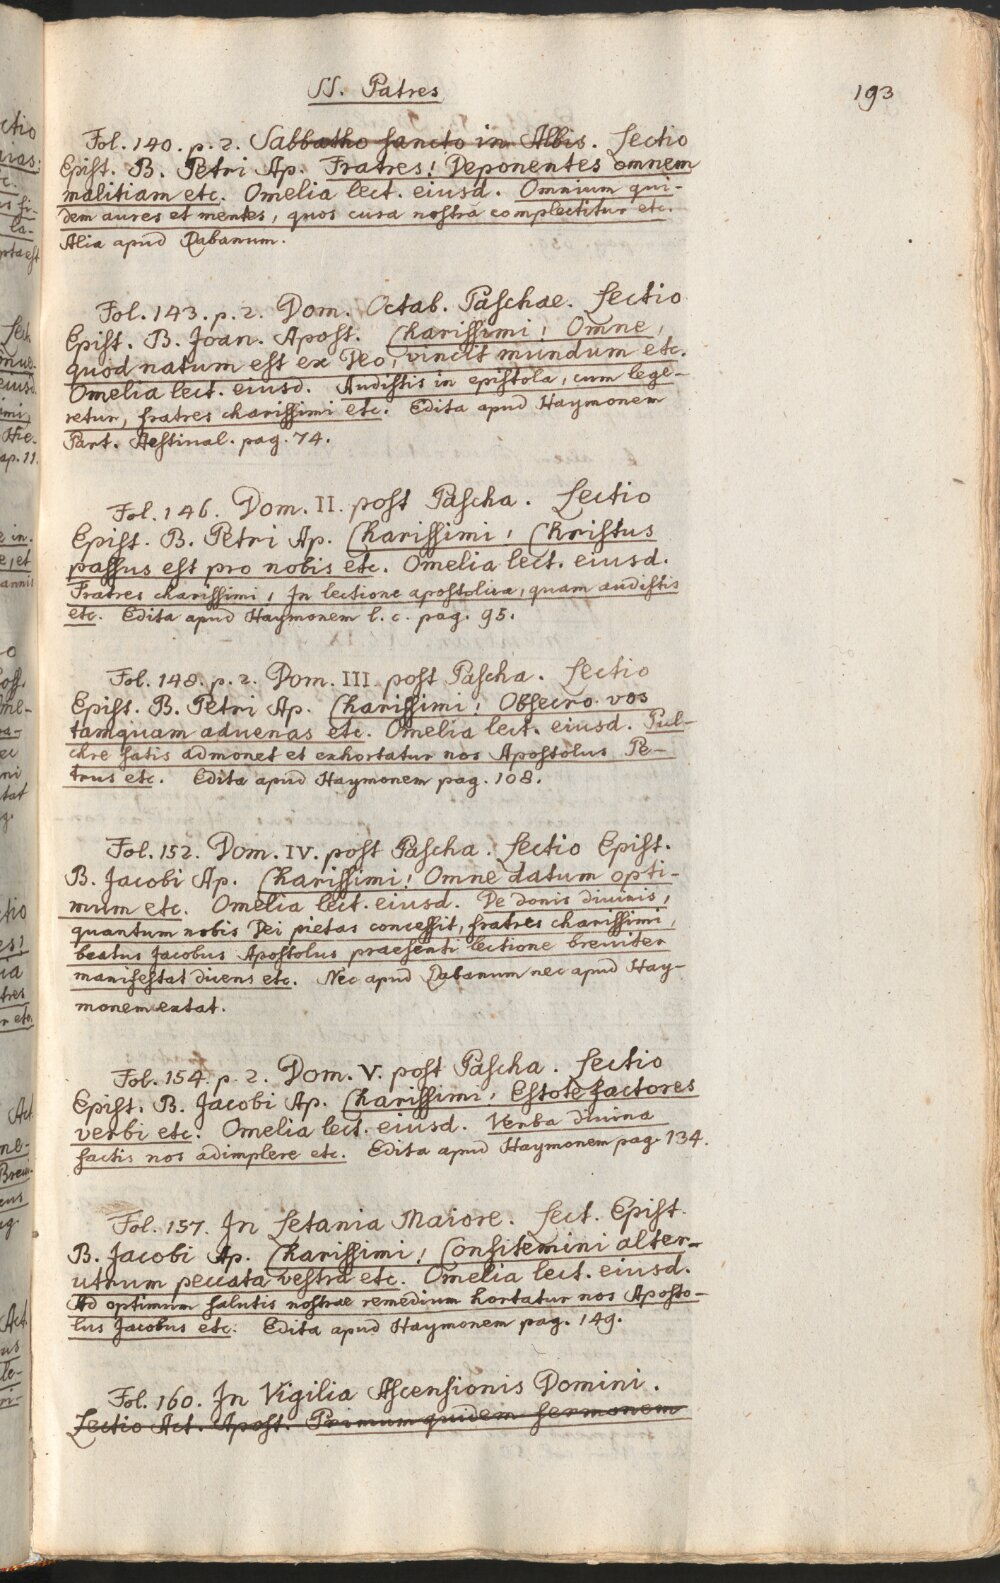 SS. Patres
193
Fol. 140. p. 2. Sabbatho sancto in Albis. Lectio
Epist. B. Petri Ap. Fratres! Deponentes omnem
malitiam etc. Omelia lect. eiusd. Omnium qui-
dem aures et mentes, quos cura nostra complectitur etc.
Alia apud Rabanum.
Fol. 143. p. 2. Dom. Octab. Paschae. Lectio
Epist. B. Joan. Apost. Charissimi! Omne,
quod natum est ex Deo, vincit mundum etc.
Omelia lect. eiusd. Audistis in epistola, cum lege-
retur, fratres charissimi etc. Edita apud Haymonem
Part. Aestival. pag. 74.
Fol. 146. Dom. II. post Pascha. Lectio
Epist. B. Petri Ap. Charissimi! Christus
passus est pro nobis etc. Omelia lect. eiusd.
Fratres charissimi, In lectione apostolica, quam audistis
etc. Edita apud Haymonem l. c. pag. 95.
Fol. 148. p. 2. Dom. III post Pascha. Lectio
Epist. B. Petri Ap. Charissimi! Obsecro vos
tamquam advenas etc. Omelia lect. eiusd. Pul-
chre satis admonet et exhortatur nos Apostolus Pe-
trus etc. Edita apud Haymonem pag. 108.
Fol. 152. Dom. IV. post Pascha. Lectio Epist.
B. Jacobi Ap. Charissimi! Omne datum opti-
mum etc. Omelia lect. eiusd. De donis divinis,
quantum nobis Dei pietas concessit, fratres charissimi,
beatus Jacobus Apostolus praesenti lectione breviter
manifestat dicens etc. Nec apud Rabanum nec apud Hay-
monem extat.
Fol. 154. p. 2. Dom. V. post Pascha. Lectio
Epist. B. Jacobi Ap. Charissimi! Estote factores
verbi etc. Omelia lect. eiusd. Verba divina
factis nos adimplere etc. Edita apud Haymonem pag. 134.
Fol. 157. In Letania Maiore. Lect. Epist.
B. Jacobi Ap. Charissimi! Confitemini alter-
utrum peccata vestra etc. Omelia lect. eiusd.
Ad optimum salutis nostrae remedium hortatur nos Aposto-
lus Jacobus etc. Edita apud Haymonem pag. 149.
Fol. 160. In Vigilia Ascensionis Domini.
Lectio Act. Apost. Primum quidem sermonem